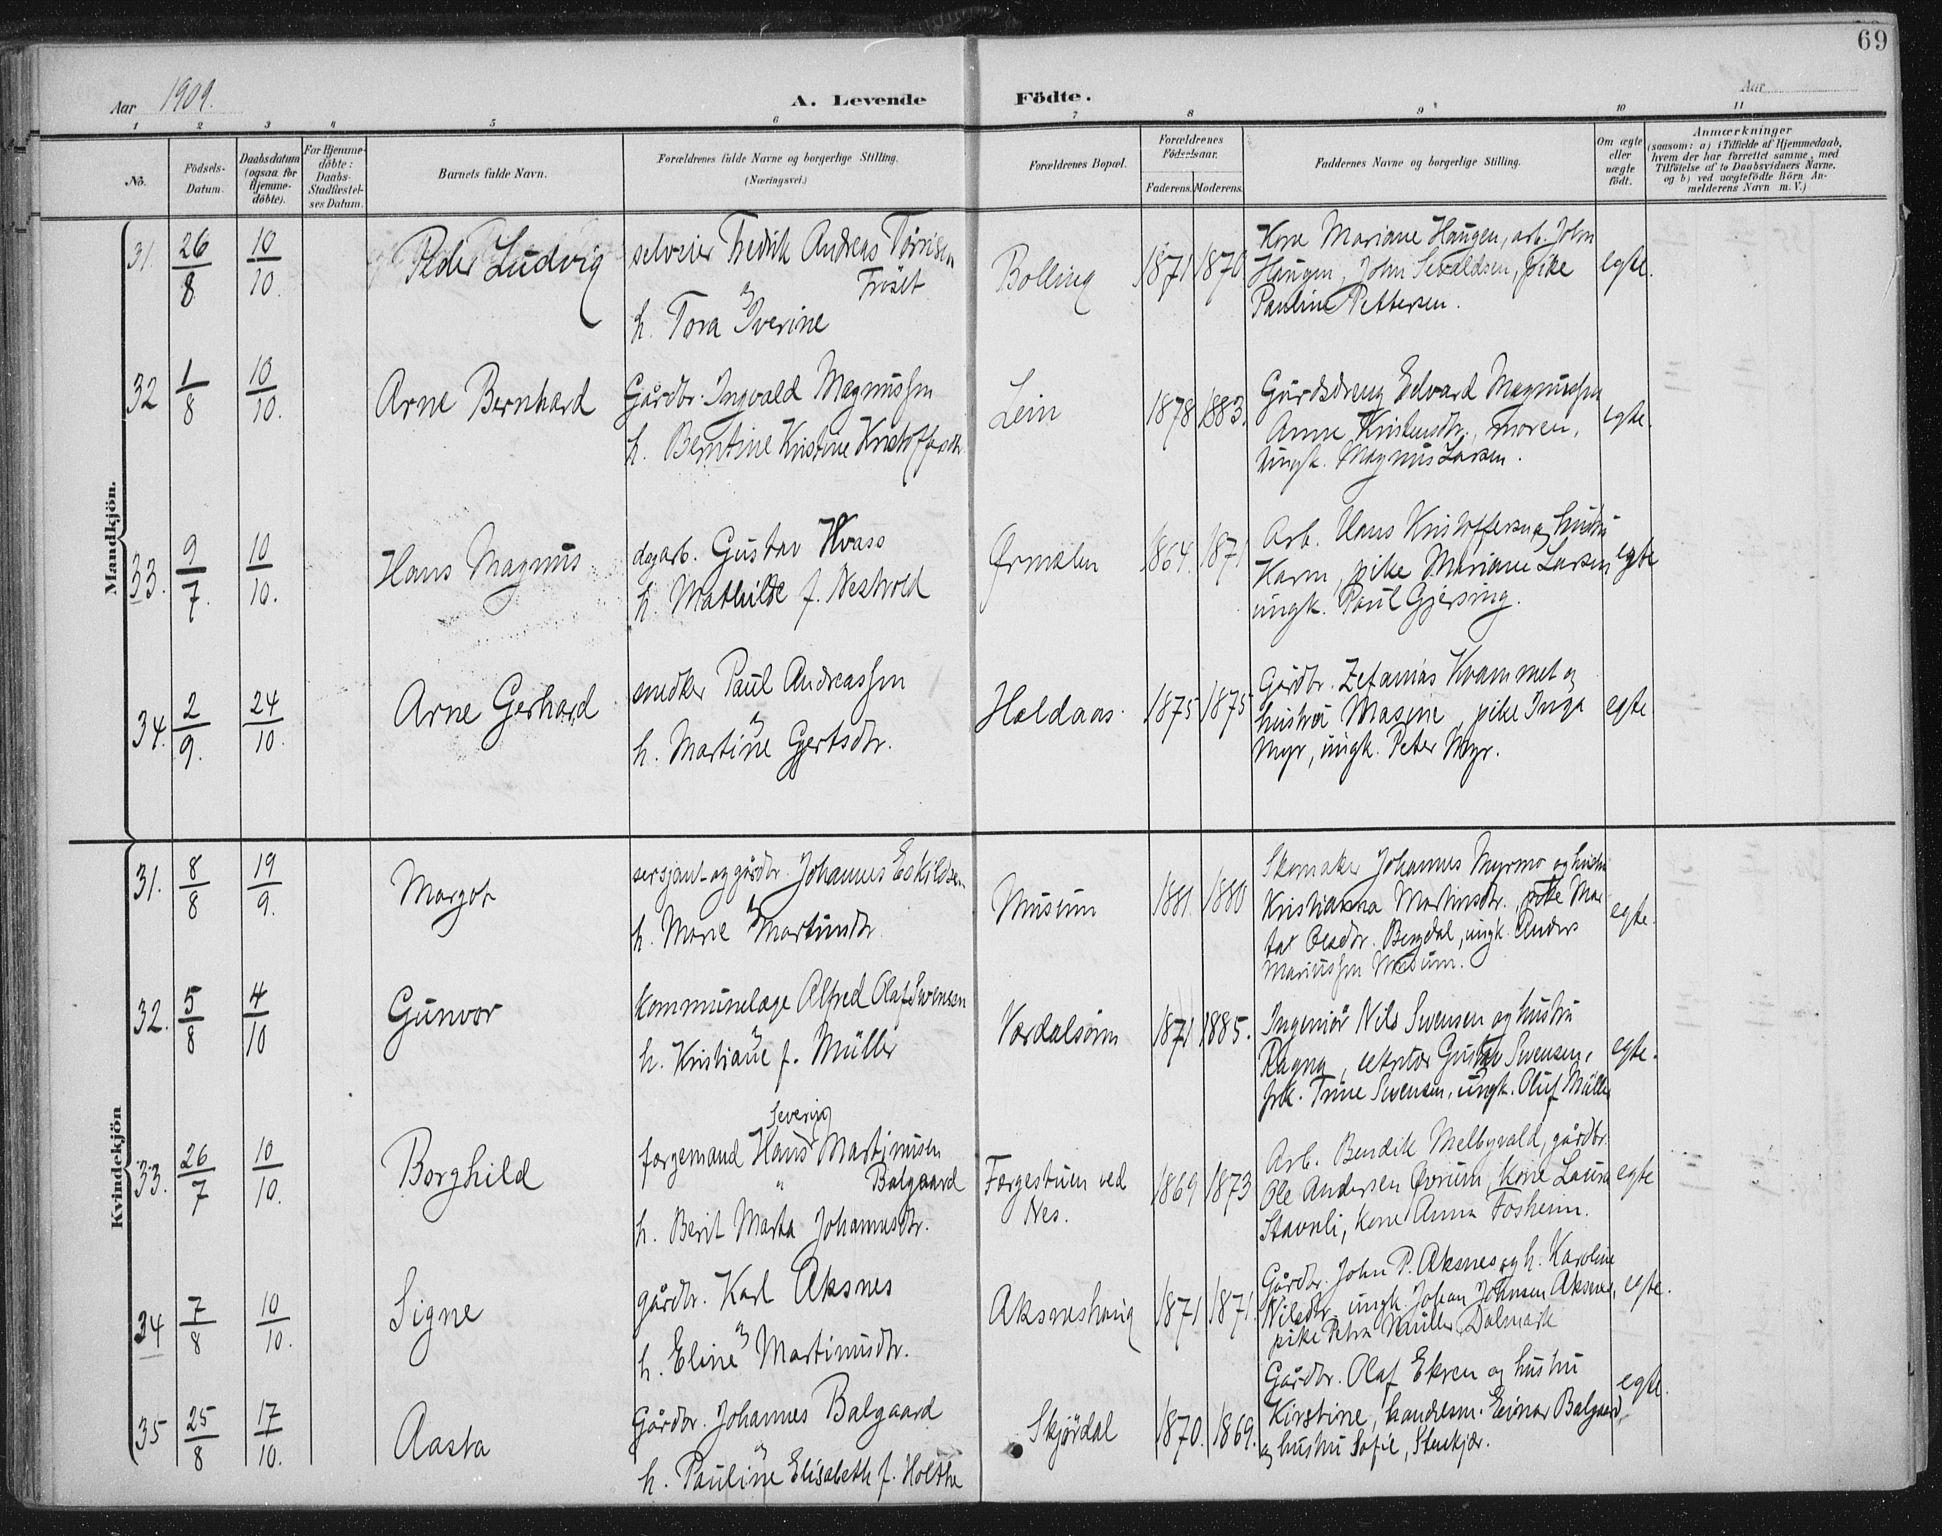 69
Aar 1909.
A. Levende Födte.
Aar
1 2 3 4 5 6 7 8 9 10 11
No.
Födsels-
Datum.
Daabsdatum
(ogsaa for
Hjemme-
döbte).
For Hjemme-
döbte:
Daabs-
Stadfæstel-
ses Datum.
Barnets fulde Navn.
Forældrenes fulde Navne og borgerlige Stilling.
(Næringsvei.)
Forældrenes Bopæl.
Forældrenes
Födselsaar.
Faderens. Moderens.
Faddernes Navne og borgerlige Stilling.
Om ægte
eller
uægte
födt.
Anmærkninger
(saasom: a) i Tilfælde af Hjemmedaab,
hvem der har forrettet samme, med
Tilföielse af to Daabsvidners Navne.
og b) ved uægtefödte Börn An-
melderens Navn m. V.)
Mandkjön.
31. 26/8 10/10. Peder Ludvig
selveier Fredrik Andreas Tørrisen
Frøset
h. Tora Iverine
Bolling 1871 1870
Kone Mariane Haugen, arb. John
Haugen, John Sevaldsen, pike
Pauline Pettersen.
egte.
32 1/8 10/10. Arne Bernhard
Gårdbr. Ingvald Magnussen
h. Berntine Kristine Kristoffersdtr.
Lein 1878 1883.
Gårdsdreng Edvard Magnussen
Anne Kristensdtr., moren,
ungk. Magnus Larsen.
egte.
33. 9/7. 10/10. Hans Magnus
dagarb. Gustav Kvass
h. Mathilde f. Nestvold
Ørmelen 1864. 1871
Arb. Hans Kristoffersen og hustru
Karen, pike Mariane Larsen
ungk. Paul Gjersing.
egte
34. 2/9. 24/10. Arne Gerhard
snedker Paul Andreassen
h. Martine Gjertsdtr.
Haldaas. 1875 1875
Gårdbr. Zefanias Kvammet og
hustru Masine, pike Inga
Myr, ungk. Peter Myr.
egte
Kvindekjön
31. 8/8 19/9. Margot
sersjant og gårdbr. Johannes Eskildsen
h. Marie Martinsdtr.
Musum 1881. 1880
Skomaker Johannes Myrmo og hustru
Kristianna Martinsdtr., pike Mar-
ta Olsdtr. Bergdal, ungk. Anders
Mariussen Musum.
egte.
32. 5/8 4/10 Gunvor
kommunelæge Alfred Olaf Svensen
h. Kristiane f. Müller
Værdalsøren 1871 1885.
Ingeniør Nils Svensen og hustru
Ragna, Gustav Svensen,
frk. Trine Svensen, ungk. Oluf Müller
egte.
33. 26/7 10/10. Borghild
Severin
færgemand Hans Martinusen
Balgaard
h. Berit Marta Johannesdtr.
Færgestuen ved
Nes.
1869 1873
Arb. Bendik Melbyvald, gårdbr.
Ole Andersen Øvrum, kone Laura
Stavnli, kone Anna Fosheim.
egte
34 7/8 10/10. Signe
gårdbr. Karl Aksnes
h. Eline Martinusdtr.
Aksneshaug 1871 1871.
Gårdbr. John P. Aksnes og h. Karoline
Nilsdtr., ungk. Johan Johnsen Aksnes,
pike Petra Müller Dalmark
egte.
35 25/8 17/10. Aasta
Gårdbr. Johannes Balgaard
h. Pauline Elisabeth f. Holthe
Skjørdal 1870. 1869.
Gårdbr. Olaf Ekren og hustru
Kirstine, handelsm. Einar Balgaard
og hustru Sofie, Stenkjær.
egte.